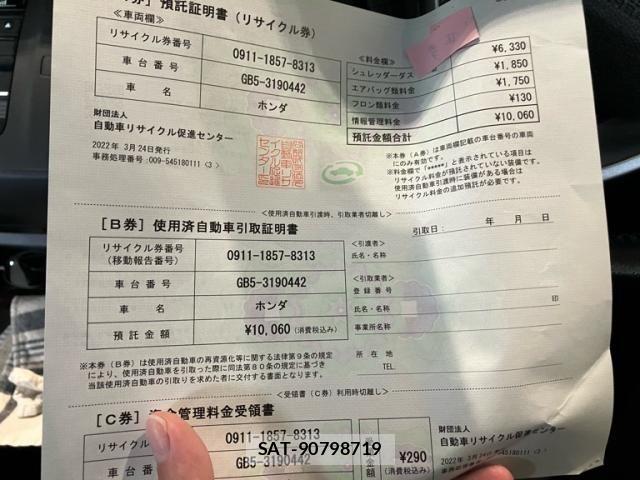 券］預託証明書（リサイクル券）
＜車両欄＞
リサイクル券番号 0911-1857-8313
車台番号 GB5-3190442
車名 ホンダ
＜料金欄＞
シュレッダーダス ¥6,330
エアバッグ類料金 ¥1,850
フロン類料金 ¥1,750
情報管理料金 ¥130
預託金額合計 ¥10,060
財団法人
自動車リサイクル促進センター
2022年 3月24日発行
事務処理番号:009-545180111〈3〉
※本券（A券）は車両欄記載の車台番号の車両
にのみ有効です。
※料金欄で「*****」と表示されている項目は
リサイクル料金が預託されていない装備です。
使用済自動車引渡時に装備がある場合は
リサイクル料金の追加預託が必要です。
＜使用済自動車引渡時、引取業者切離し＞
［B券］使用済自動車引取証明書
引取日： 年 月 日
リサイクル券番号
（移動報告番号） 0911-1857-8313
車台番号 GB5-3190442
車名 ホンダ
預託金額 ¥10,060（消費税込み）
＜引渡者＞
氏名・名称
＜引取業者＞
登録番号
氏名・名称 印
事業所名称
所在地
TEL
※本券（B券）は使用済自動車の再資源化等に関する法律第９条の規定
により、使用済自動車を引取った際に同法第８０条の規定に基づき
当該使用済自動車の引取りを求めた者に交付する書面となります。
＜受領書（C券）利用時切離し＞
［C券］資金管理料金受領書
リサイクル 0911-1857-8313
車台 GB5-3190442
金額 ¥290
（消費税込み）
財団法人
自動車リサイクル促進センター
2022年 3月24日
事務処理番号
SAT-90798719